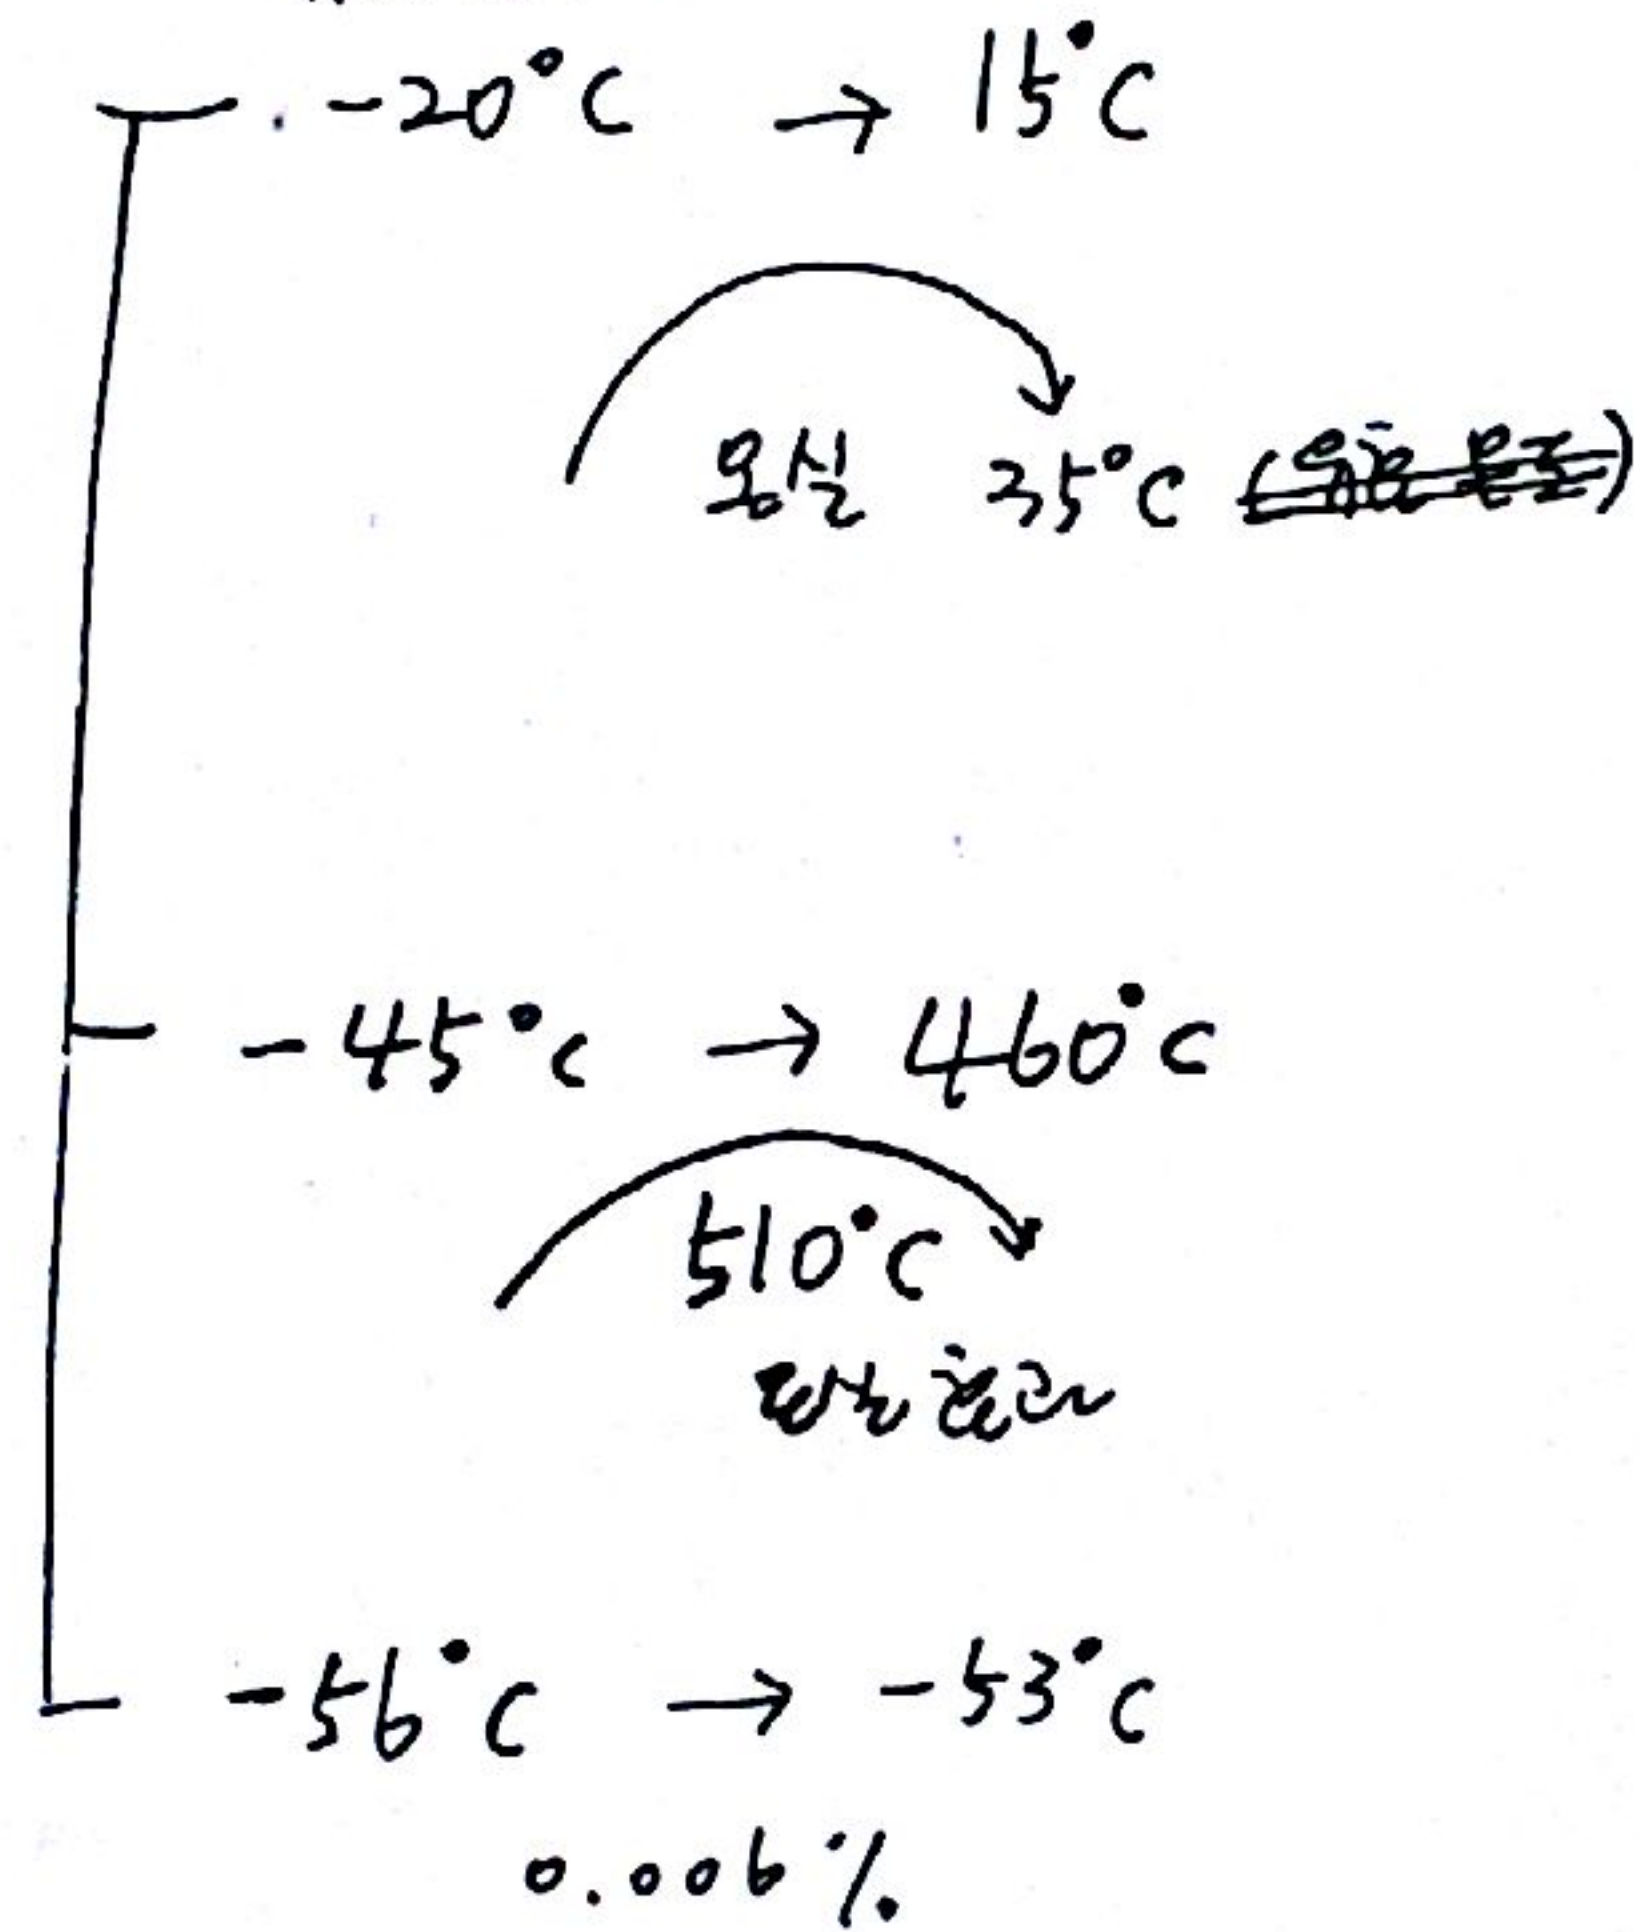 . -20°C → 15°C
온실 35°C
-45°C → 460°C
510°C
온실효과
-56°C → -53°C
0.006%